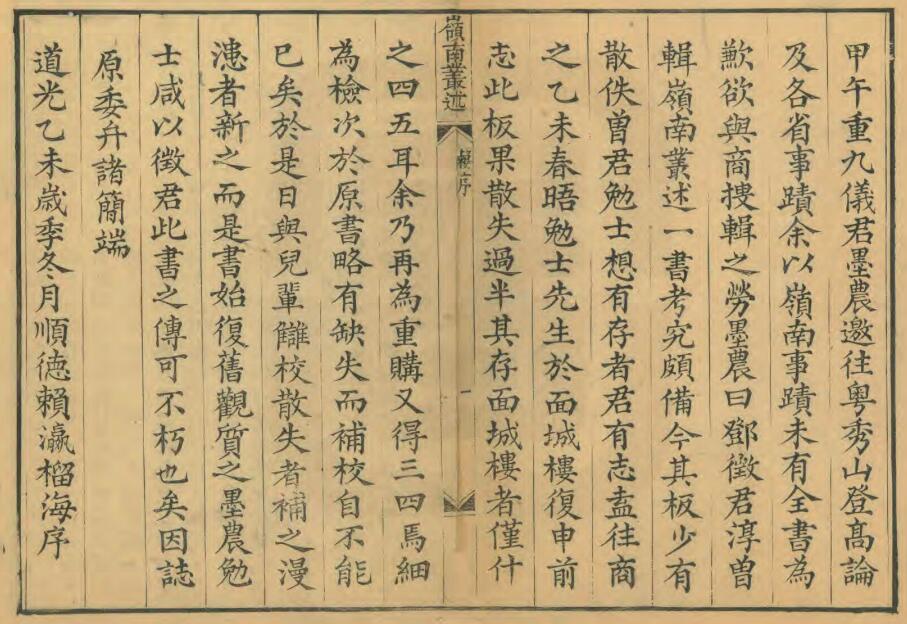 甲午重九儀君墨農邀往粵秀山登髙論
及各省事蹟余以嶺南事蹟未有全書為
歉欲與商搜輯之勞墨農曰鄧徵君淳曽
輯嶺南叢述一書考究頗備今其板少有
散佚曽君勉士想有存者君有志盍往商
之乙未春晤勉士先生於面城樓復申前
志此板果散失過半其存面城樓者僅什
嶺南叢述
賴序
一
之四五耳余乃再為重購又得三四焉細
為檢次於原書略有缺失而補校自不能
已矣於是日與兒輩讎校散失者補之漫
漶者新之而是書始復舊觀質之墨農勉
士咸以徵君此書之傳可不朽也矣因誌
原委弁諸簡端
道光乙未歲季冬月順德賴瀛榴海序